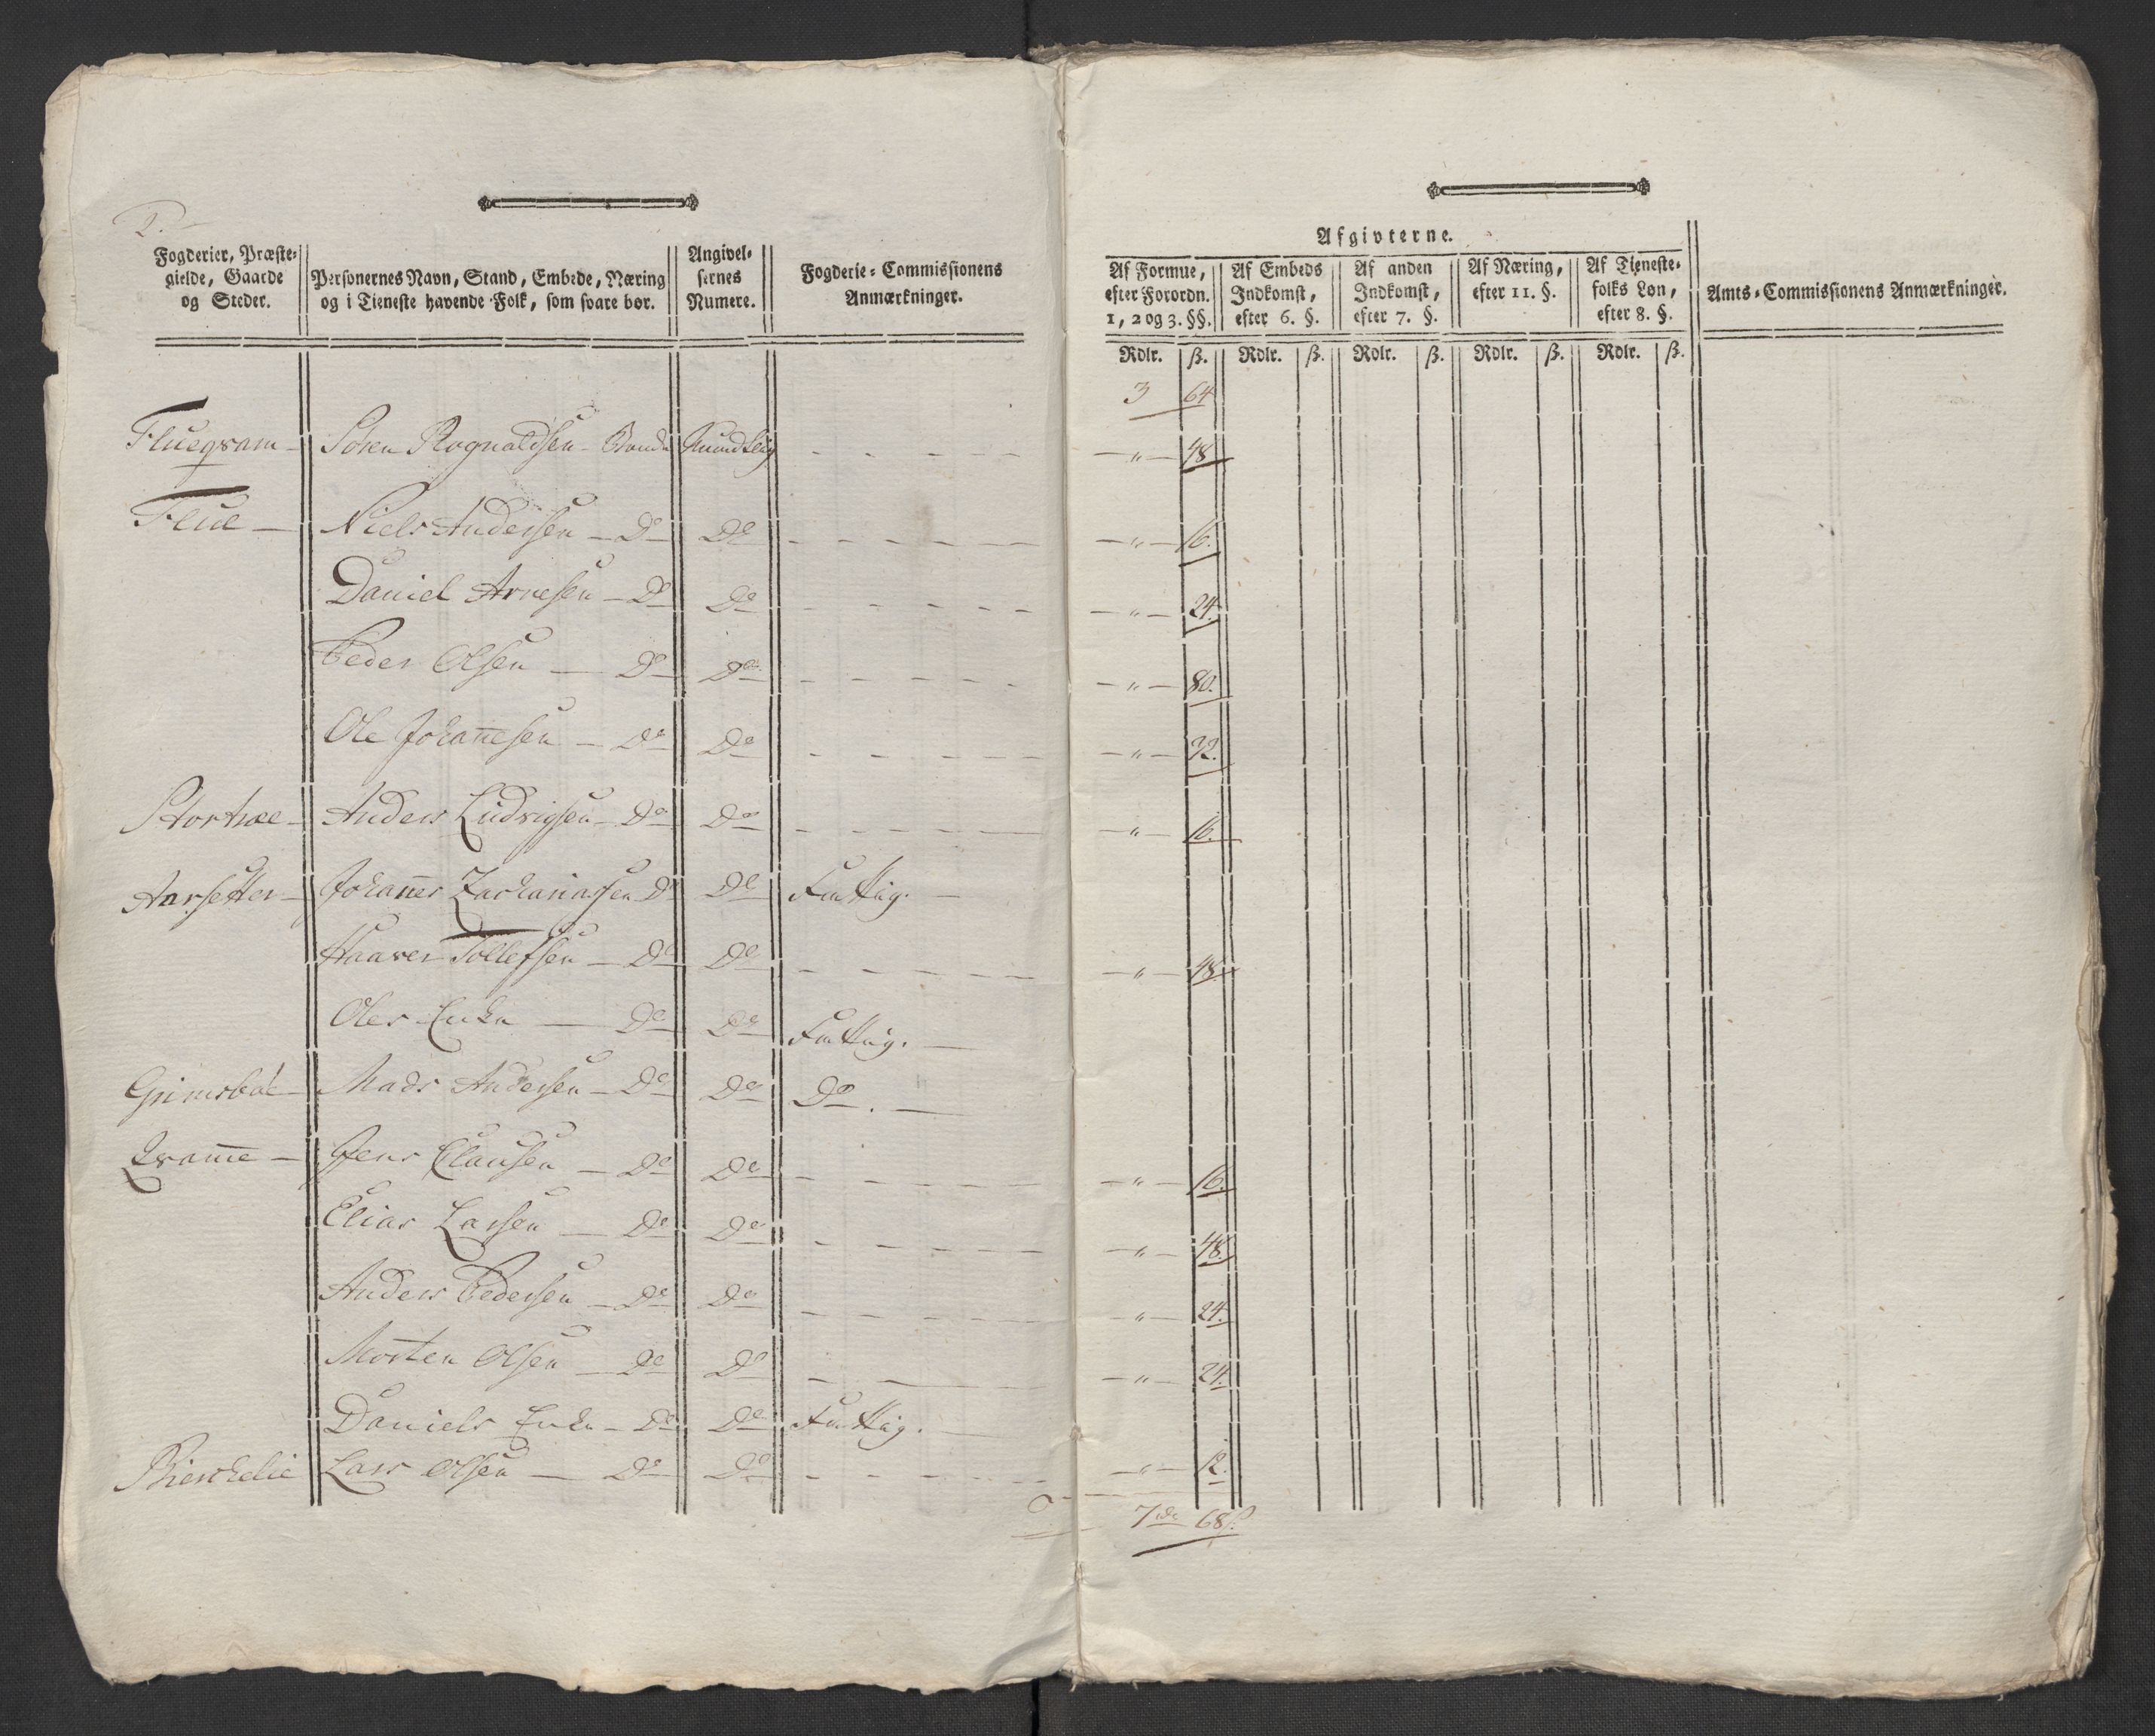 2.
Fogderier, Præste-
gielde, Gaarde
og Steder.
Personernes Navn, Stand, Embede, Næring
og i Tieneste havende Folk, som svare bør.
Angivel-
sernes
Numere.
Fogderie-Commissionens
Anmærkninger.
Afgivterne.
Af Formue,
efter Forordn.
1, 2 og 3. §§.
Af Embeds
Indkomst,
efter 6. §.
Af anden
Indkomst,
efter 7. §.
Af Næring,
efter 11. §.
Af Tieneste-
folks Løn,
efter 8. §.
Amts-Commissionens Anmærkninger.
Rdlr. ß. Rdlr. ß. Rdlr. ß. Rdlr. ß. Rdlr. ß.
3 64
Fluegram - Søren Rognaldsen - Bonde Mundtlig - - - - - " - 48
Flue - Niels Andersen - Do Do - - - - - " - 16.
Daniel Arnesen - Do Do - - - - - " - 24.
Peder Olsen - Do Do - - - - - " - 80.
Ole Johan̄esen - Do Do - - - - - " - 32.
Stortræe - Anders Ludvigsen - Do Do - - - - - " - 16.
Aarsetter - Johan̄es Zachariassen Do Do Fattig. -
Haaver Tollefsen - Do Do - - - - - " - 48
Oles Enke - Do Do Fattig. -
Grimstad - Mads Andersen - Do Do Do. -
Qvam̄e - Jens Clausen - Do Do - - - - - " - 16.
Elias Larsen - Do Do - - - - - " - 48.
Anders Pedersen - Do Do - - - - - " - 24.
Morten Olsen - Do Do - - - " - 24.
Daniels Enke - Do Do Fattig. -
Bierkelie Lars Olsen - Do Do - - - - - " - 12.
7 rdr 68 ß.